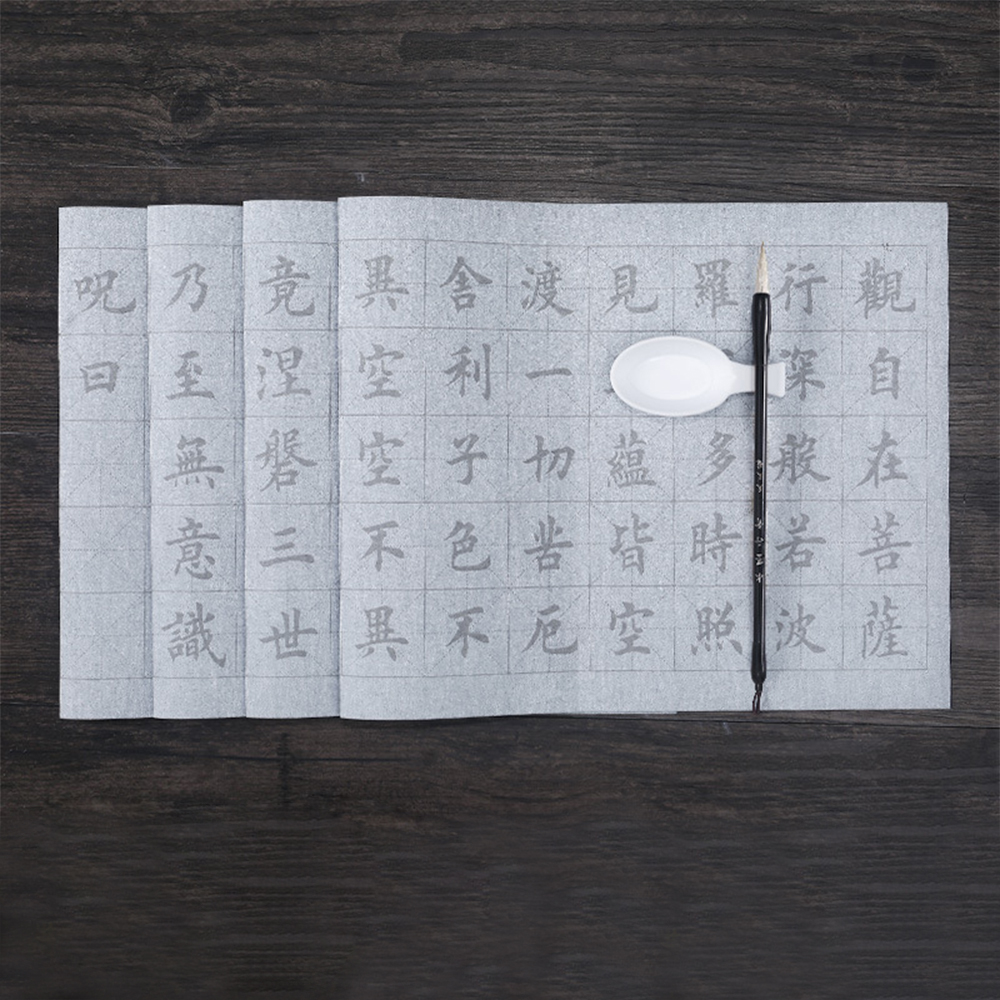 觀自在菩薩
行深般若波
羅多時照
見蘊皆空
渡一切苦厄
舍利子色不
異空空不異
竟涅磐三世
乃至無意識
呪曰